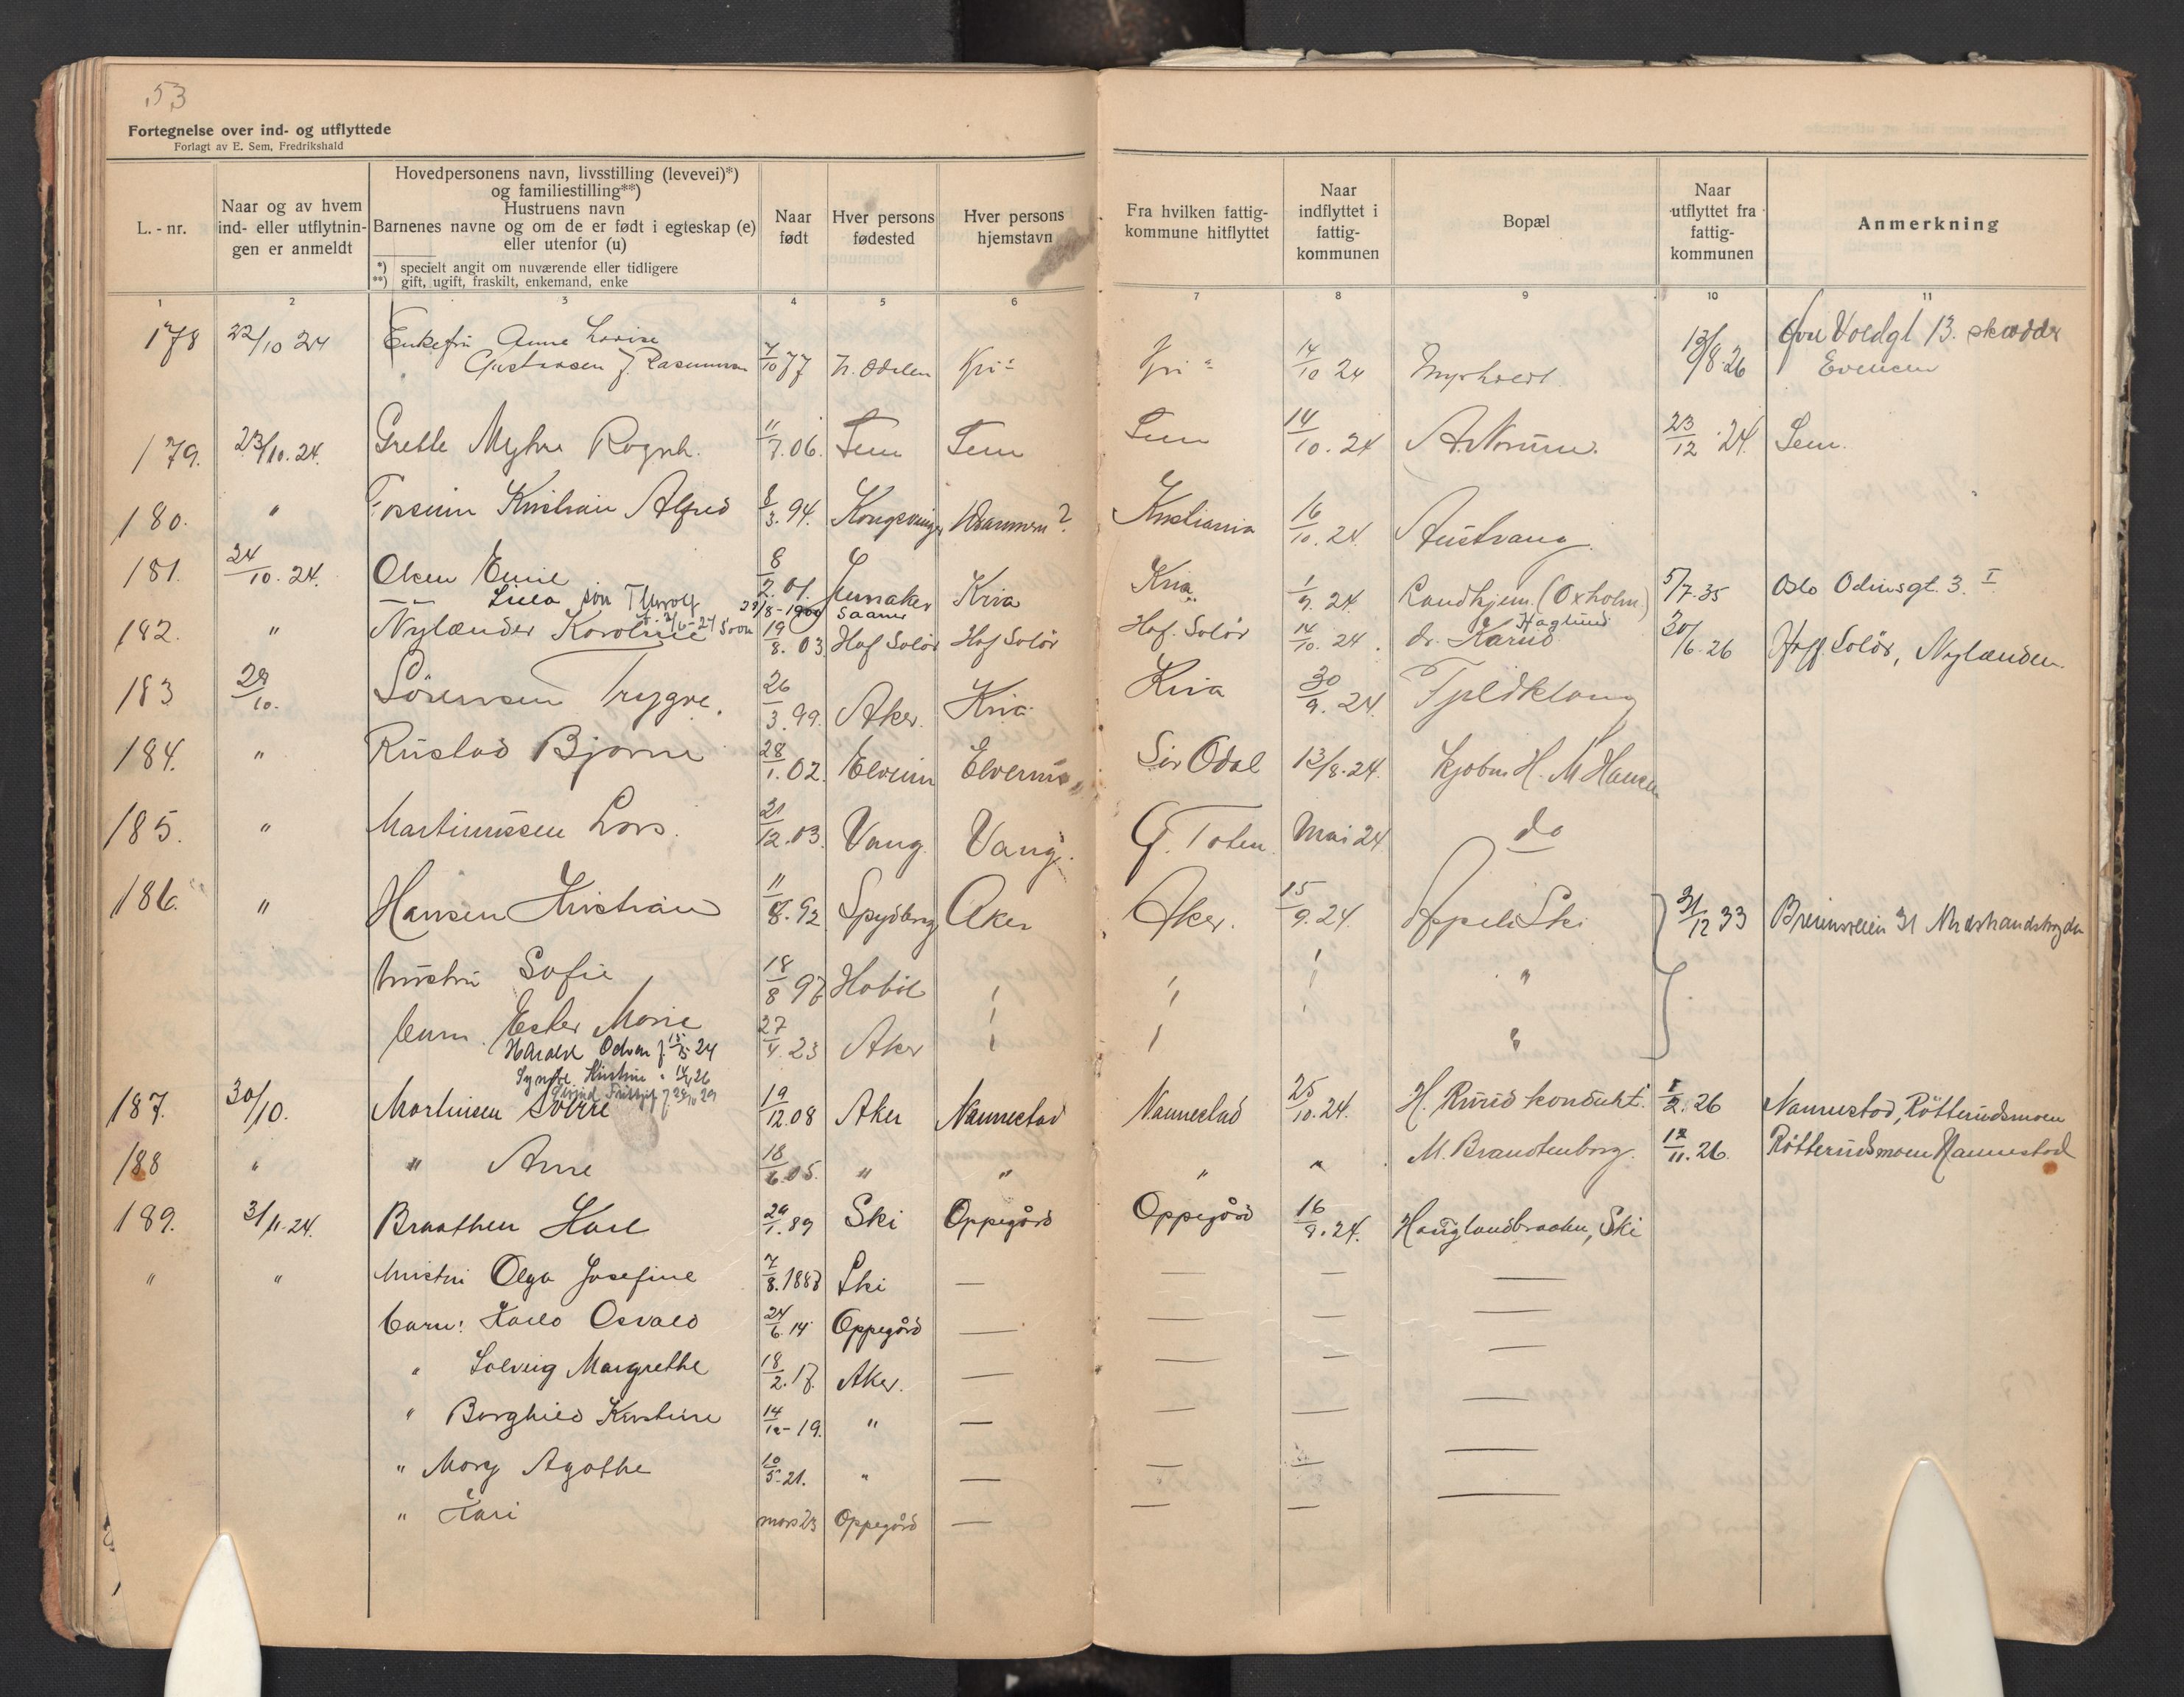 53
Fortegnelse over ind- og utflyttede
Forlagt av E. Sem, Fredrikshald
L.-nr.
Naar og av hvem ind- eller utflytningen er anmeldt
Hovedpersonens navn, livsstilling (levevei)*)
og familiestilling**)
Hustruens navn
Barnenes navne og om de er født i egteskap (e)
eller utenfor (u)
*) specielt angit om nuværende eller tidligere
**) gift, ugift, fraskilt, enkemand, enke
Naar født
Hver persons fødested
Hver persons hjemstavn
Fra hvilken fattigkommune hitflyttet
Naar indflyttet i fattigkommunen
Bopæl
Naar utflyttet fra fattigkommunen
Anmerkning
1 2 3 4 5 6 7 8 9 10 11
178 22/10 24 Enkefru Anna Lovise Øvre Voldgt 13. skrædder
Gustavsen f. Rasmussen 7/10 77 N. Odalen Kri= Kri= 14/10 24 Myrhvert 13/8.26 Evensen
179. 23/10.24. Grette Myhre Ragnh. 11/7.06. Sem Sem Sem 14/10.24 A. Norum. 23/12.24. Sem.
180. " Fossum Kristian Alfred 8/3.94. Kongsvinger Drammen? Kristiania 16/10.24. Austvang
181. 24/10.24. Olsen Emil 8/2.01. Jernaker Kria Kria. 1/9.24. Landhjem (Oxholm) 5/7.35 Oslo Odinsgt. 3. I
29/8-1900 Saaner
182. " Nylænder Karoline 19/8.03 Hof Solør Hof Solør Hof. Solør 14/10.24. dr. Karud Haglund 30/6.26 Hoff. Solør, Nylænden
183 29/10. Sörensen Trygve. 26/3.99. Aker. Kria Kria 30/9.24. Fjeldklang
184. " Rustad Bjarne 28/1.02. Elverum Elverum Sör Odal 13/8.24. kjøbm. H. M Hansen
185. " Martinussen Lars. 21/12.03. Vang. Vang. Ø. Toten. Mai 24 do
186. " Hansen Kristian 11/8.92 Spydberg Aker Aker. 15/9.24. Appels Ski 31/12 33
hustru Sofie 18/8 97 Haböl " " " "
barn. Ester Marie 27/4.23 Aker " " "
Harald Odvar f. 15/5 24
Synøve Kirstine " 14/4 26
187. 30/10. Martinsen Sverre 19/12.08 Aker Nannestad Nannestad 25/10.24. H. Ruud kondukt. 1/2.26 Nannestad, Rötterudsmoen
188 " " Arne 18/6.05. " " " " M. Brandtenborg. 12/11.26. Rötterudsmoen Nannestad
189. 3/11.24. Braathen Karl 29/1.89 Ski Oppegård Oppegård 16/9.24. Hauglandbraaten, Ski
" " hustru Olga Josefine 7/8.1887 Ski — — — —
barn: Karlo Osvald 24/6.14 Oppegård — — — —
" Solveig Margrethe 18/2.17. Aker. — — — —
" Borghild Kirstine 14/12-19. " — — — —
" Mary Agathe 10/5-21. " — — — —
" Kari mars 23 Oppegård — — — —